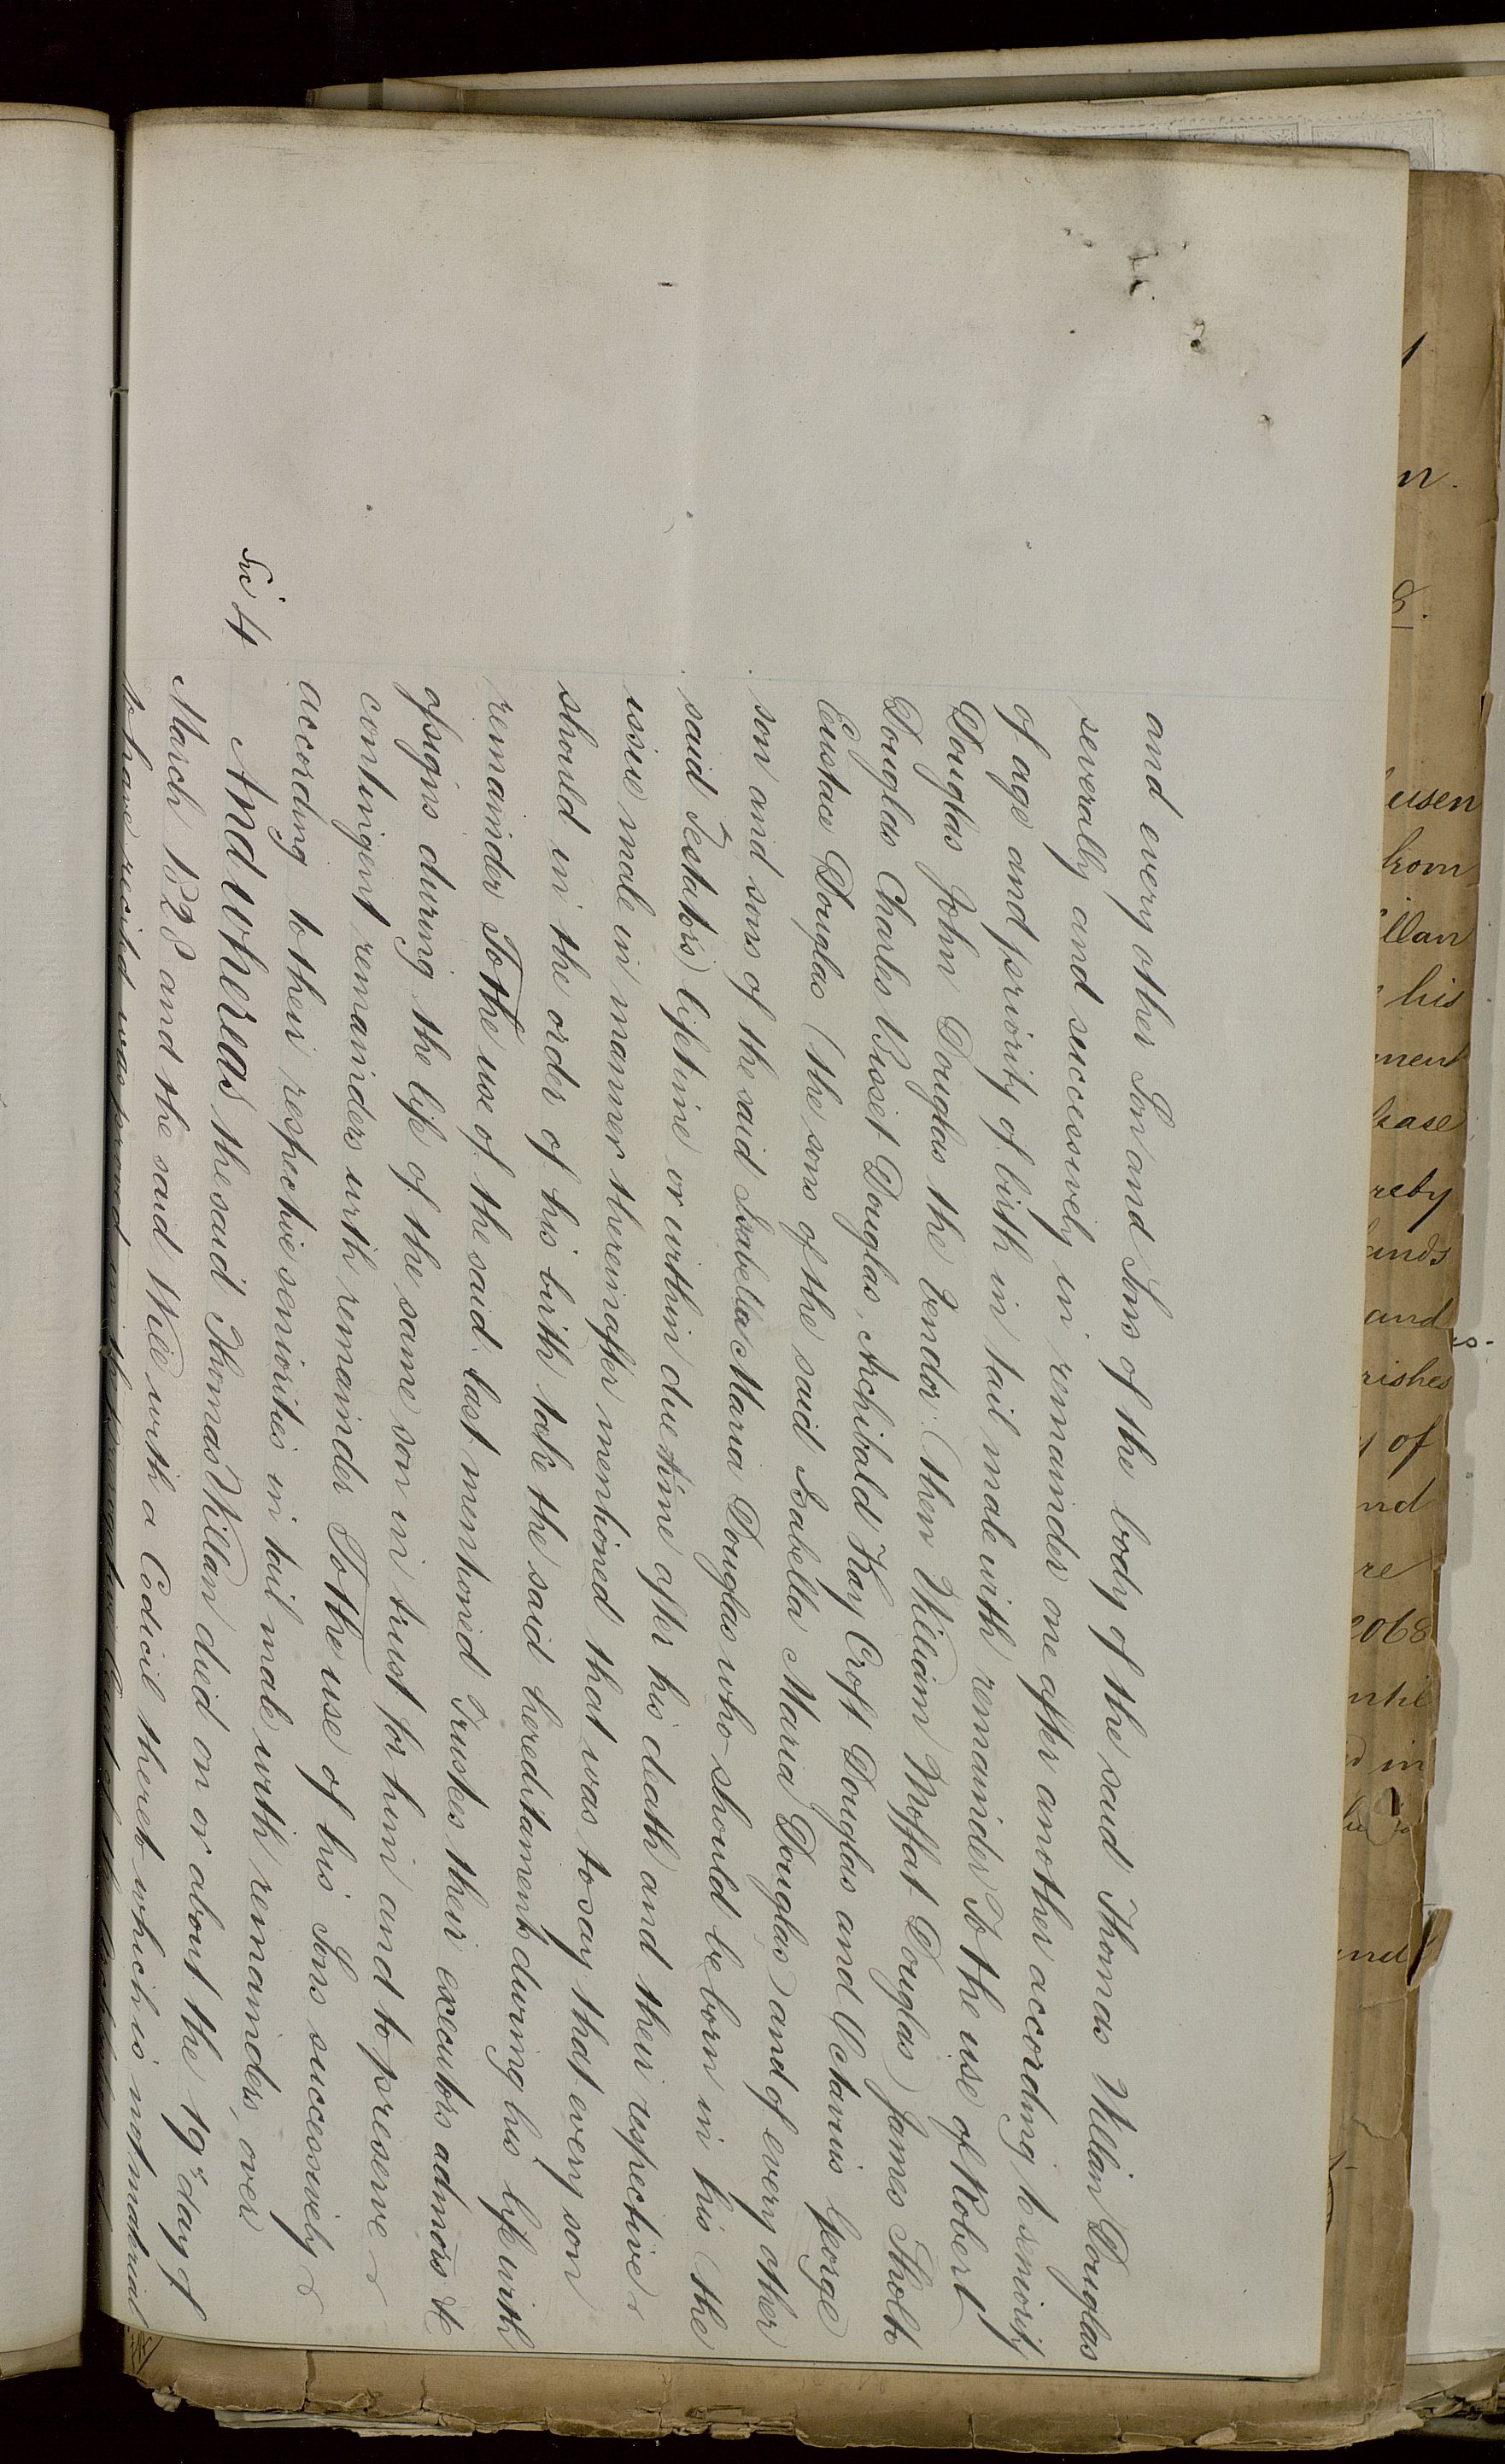 and every other Son and Sons of the body of the said Thomas Willan Douglas
severally and successively in remainder one after another according to seniority
of age and priority of birth in tail male with remainder To the use of Robert
Douglas John Douglas the Vendor (then William Moffat Douglas) James Sholto
Douglas Charles Bisset Douglas, Archibald Kay Croft Douglas and Octavius George
Eustace Douglas (the sons of the said Isabella Maria Douglas) and of every other
son and sons of the said Isabella Maria Douglas who should be born in his (the
said Testators) lifetime or within due time after his death and their respective
issue male in manner thereinafter mentioned that was to say that every son
should in the order of his birth take the said hereditaments during his life with
remainder To the use of the said last mentioned Trustees their executors admors &
assigns during the life of the same son in trust for him and to preserve
contingent remainders with remainder To the use of his Sons successively
according to their respective seniorities in tail male with remainders over
4
And whereas the said Thomas Willan died on or about the 19th day of
March 1828 and the said Will with a Codicil thereto which is not material
to have recited was proved in the prerogative Court of the
n.
usen
from
llan
his
ment
lease
reby
ands
and
rishes
of
nd
re
2068
ntil
d in
and